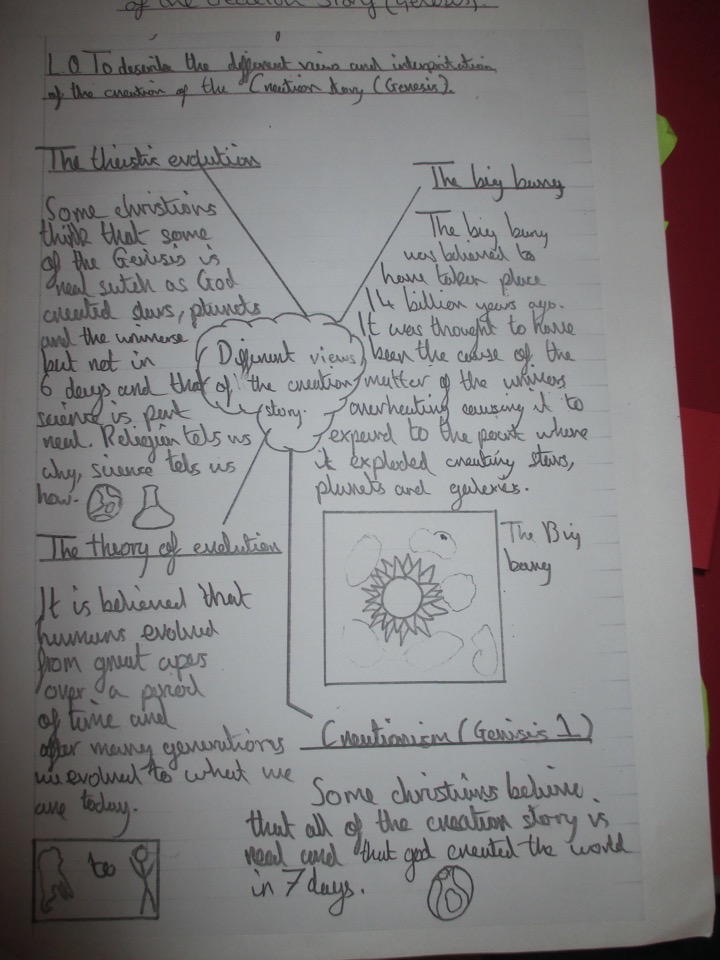 of the Creation Story (Genesis).
L.O To describe the different views and interpritation
of the creation of the Creation story (Genesis).
The thiestic evolution
Some christions
think that some
of the Genisis is
real sutch as God
created stars, planets
and the universe
but not in
6 days and that
science is part
real. Religion tells us
why, sicense tells us
how.
The big bang
The big bang
was believed to
have taken place
14 billion years ago.
It was thought to have
been the cause of the
matter of the univers
overheating causing it to
expand to the point where
it exploded creating stars,
planets and galexies.
Different views
of the creation
story.
The Big
bang
The theory of evolution
It is believed that
humans evolved
from great apes
over a pyriod
of time and
after many generations
we evolved to what we
are today.
to
Creationism (Genisis 1)
Some christians believe
that all of the creation story is
real and that god created the world
in 7 days.